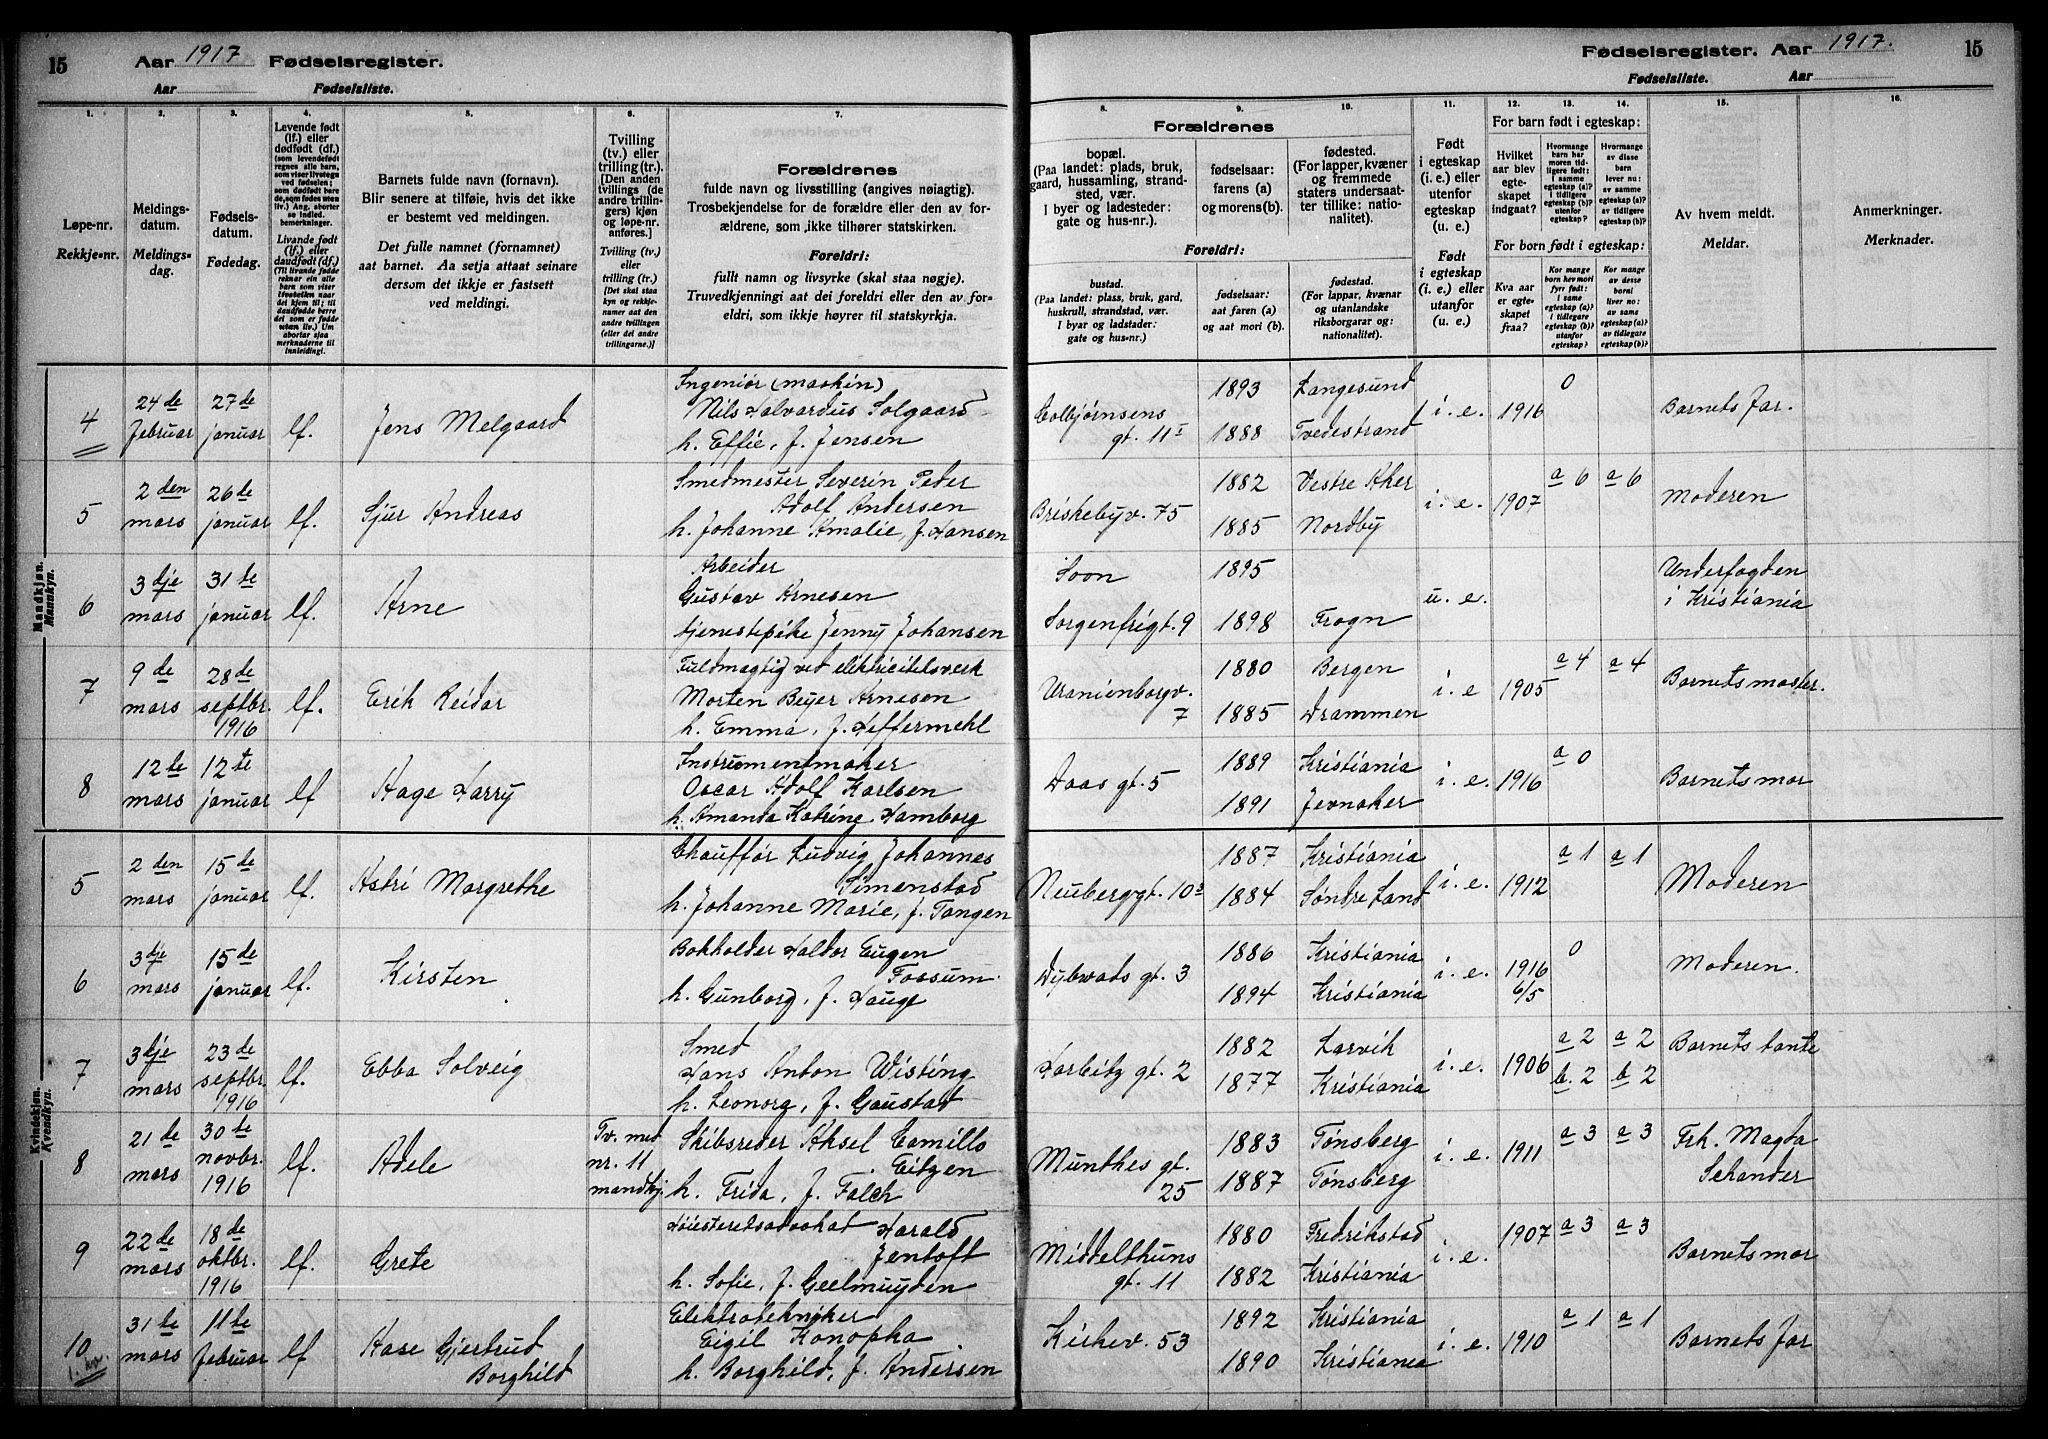 15
Aar 1917 Fødselsregister.
Aar Fødselsliste.
Fødselsregister. Aar 1917.
Fødselsliste. Aar
15
1. 2. 3. 4. 5. 6. 7.
Løpe-nr.
Rekkje=nr.
Meldings-
datum.
Meldings-
dag.
Fødsels-
datum.
Fødedag.
Levende født
(lf.) eller
dødfødt (df.)
Livande født
(lf.) eller
daudfødt (df.)
Barnets fulde navn (fornavn).
Blir senere at tilføie, hvis det ikke
er bestemt ved meldingen.
Det fulle namnet (fornamnet)
aat barnet. Aa setja attaat seinare
dersom det ikkje er fastsett
ved meldingi.
Tvilling
(tv.) eller
trilling (tr.).
[Den anden
tvillings (de
andre trillin-
gers) kjøn
og løpe-nr.
anføres.]
Tvilling (tv.)
eller
trilling (tr.).
[Det skal staa
kyn og rekkje-
numer aat den
andre tvillingen
(eller dei andre
trillingarne.)]
Forældrenes
fulde navn og livsstilling (angives nøiagtig).
Trosbekjendelse for de forældre eller den av for-
ældrene, som ikke tilhører statskirken.
Foreldri:
fullt namn og livsyrke (skal staa nøgje).
Truvedkjenningi aat dei foreldri eller den av for-
eldri, som ikkje høyrer til statskyrkja.
8. 9. 10. 11. 12. 13. 14. 15. 16.
Forældrenes
bopæl.
(Paa landet: plads, bruk,
gaard, hussamling, strand-
sted, vær.
I byer og ladesteder:
gate og hus-nr.).
fødselsaar:
farens (a)
og morens (b).
fødested.
(For lapper, kvæner
og fremmede
staters undersaat-
ter tillike: na-
tionalitet).
Foreldri:
bustad.
(Paa landet: plass, bruk, gard,
huskrull, strandstad, vær.
I byar og ladstader:
gate og hus-nr.)
fødselsaar:
aat faren (a)
og aat mori (b).
fødestad.
(For lappar, kvænar
og utanlandske
riksborgarar og:
nationalitet).
Født
i egteskap
(i. e.) eller
utenfor
egteskap
(u. e.)
Født
i egteskap
(i. e.) eller
utanfor
(u. e.).
For barn født i egteskap:
Hvilket
aar blev
egte-
skapet
indgaat?
For born født i egteskap:
Kva aar
er egte-
skapet
fraa?
Av hvem meldt.
Meldar.
Anmerkninger.
Merknader.
Mandkjøn.
Mannkyn.
4
24de
februar
27de
januar
lf.
Jens Melgaard
Ingeniør (maskin)
Nils Halvardus Solgaard
h. Effie, f. Jensen
Colbjørnsens
gt. 11 I
1893
1888
Langesund
Tvedestrand
i. e. 1916
0
Barnets far.
5
2den
mars
26de
januar
lf.
Sjur Andreas
Smedmester Severin Peder
Adolf Andersen
h. Johanne Amalie, f. Hansen
Briskebyv. 75
1882
1885
Vestre Aker
Nordby
i. e. 1907
a 6 a 6
Moderen
6
3dje
mars
31te
januar
lf.
Arne
Arbeider
Gustav Arnesen
tjenestepike Jenny Johansen
Soon
Sorgenfrigt. 9
1895
1898
Frogn
u. e.
Underfogden
i Kristiania
7
9de
mars
28de
septbr.
1916
lf.
Erik Reidar
Fuldmægtig ved elektricitetsverk
Morten Beyer Arnesen
h. Emma, f. Heffermehl
Uranienborgv.
7
1880
1885
Bergen
Drammen
i. e 1905
a 4 a 4
Barnets moster.
8
12te
mars
12te
januar
lf
Aage Harry
Instrumentmaker
Oscar Adolf Karlsen
h. Amanda Katrine Hamborg
Daas gt. 5
1889
1891
Kristiania
Jevnaker
i. e. 1916
a 0
Barnets mor
Kvindekjøn.
Kvendkyn.
5
2den
mars
15de
januar
lf.
Astri Margrethe
Chauffør Ludvig Johannes
Simenstad
h. Johanne Marie, f. Tangen
Neuberggt. 10 B
1887
1884
Kristiania
Søndre Land
i. e. 1912
a 1 a 1
Moderen
6
3dje
mars
15de
januar
lf.
Kirsten
Bokholder Haldor Eugen
Fossum
h. Gunborg, f. Hauge
Dybwads gt. 3
1886
1894
Kristiania
Kristiania
i. e. 1916
6/5
0
Moderen.
7
3dje
mars
23de
septbr.
1916
lf.
Ebba Solveig
Smed
Hans Anton Wisting
h. Leonorg, f. Gaustad
Harbitz gt. 2
1882
1877
Larvik
Kristiania
i. e. 1906
a 2 a 2
b. 2 b 2
Barnets tante
8
21de
mars
30te
novbr.
1916
lf.
Adele
Tv. med
nr. 11
mandkj.
Skibsreder Aksel Camillo
Eitzen
h. Frida, f. Falch
Munthes gt.
25
1883
1887
Tønsberg
Tønsberg
i. e. 1911
a 3 a 3
Frk. Magda
Schander
9
22de
mars
18de
oktbr.
1916
lf.
Grete
Høiesteretsadvokat Harald
Jentoft
h. Sofie, f. Geelmuyden
Middelthuns
gt. 11
1880
1882
Fredrikstad
Kristiania
i. e. 1907
a 3 a 3
Barnets mor
10
1. kv.
31te
mars
11te
februar
lf
Aase Gjertrud
Borghild
Elektrotekniker
Eigil Konopka
h. Borghild, f. Andersen
Kirkev. 53
1892
1890
Kristiania
Kristiania
i. e. 1910
a 1 a 1
Barnets far